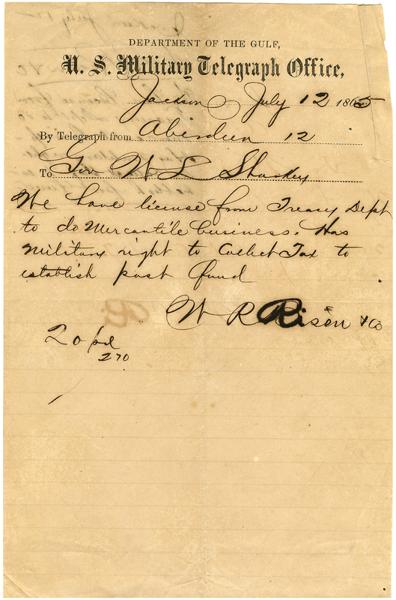 DEPARTMENT OF THE GULF,
U. S. Military Telegraph Office,
Jackson July 12 1865
By Telegraph from Aberdeen 12
To Gov W L Sharkey
We have license from Treasy Dept
to do Mercantile business. Has
Military right to Collect Tax to
establish post fund
W R Rison & Co
20 pd
270